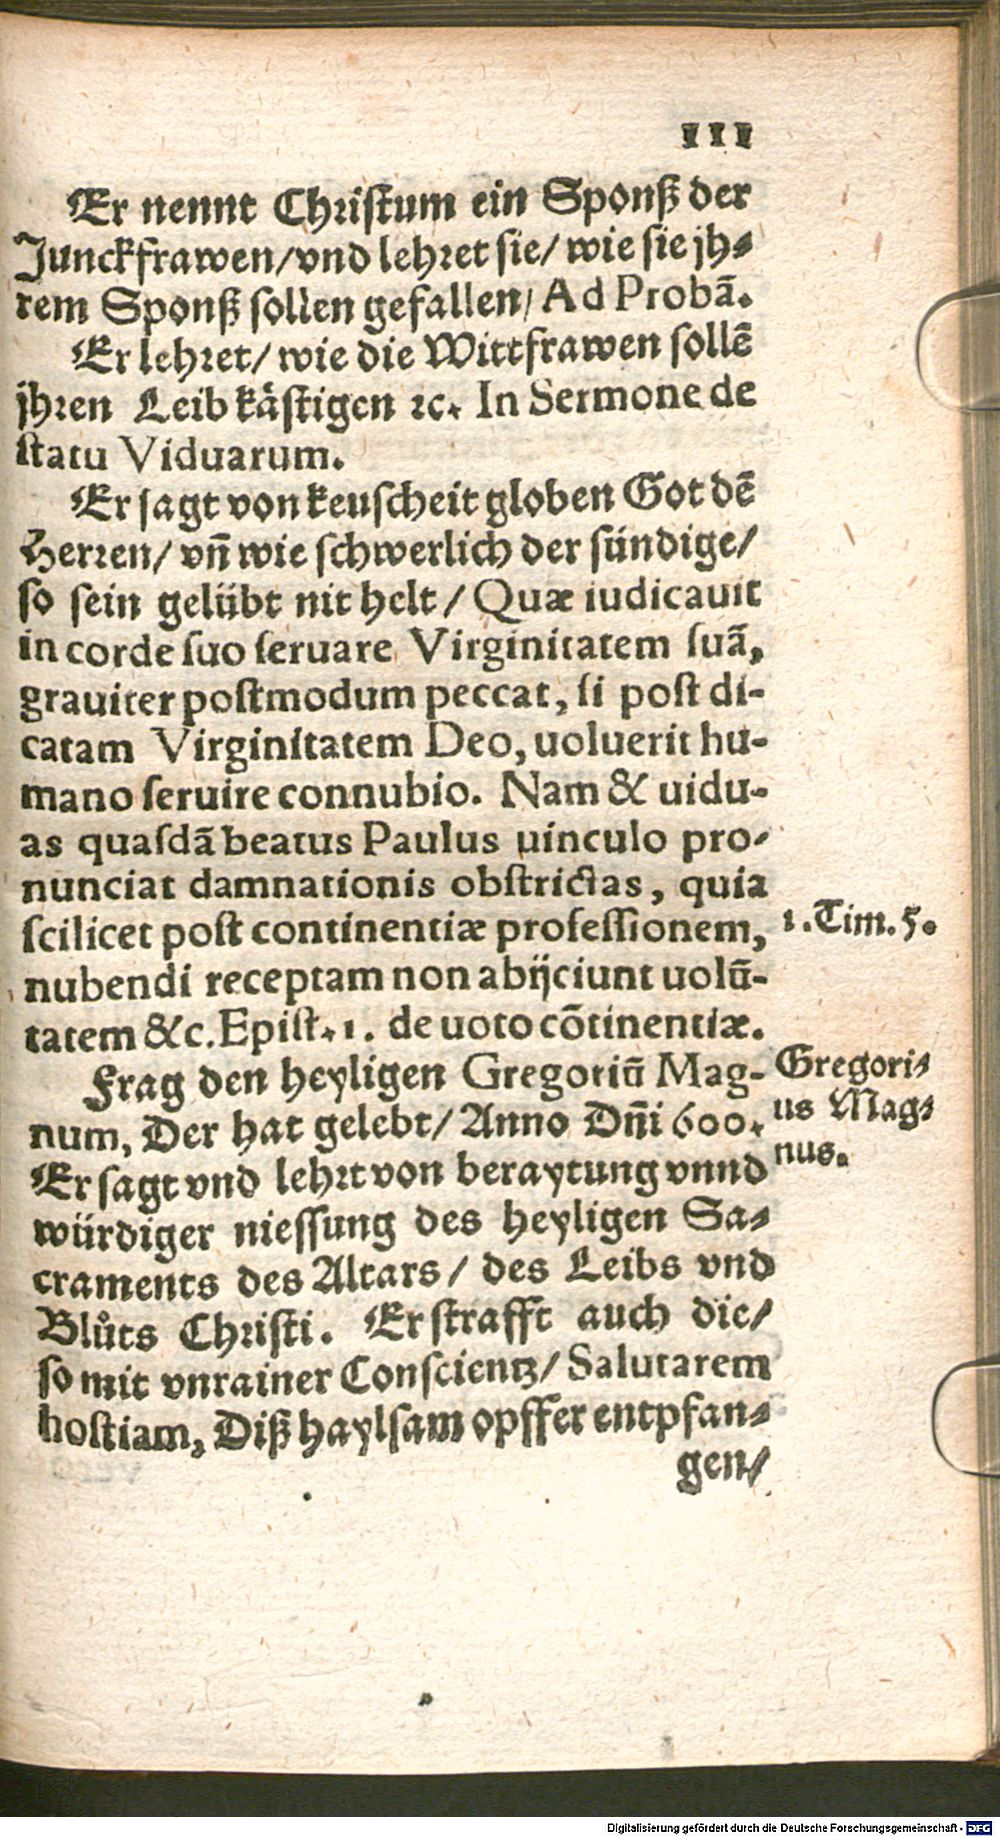 111
Er nennt Christum ein Sponß der
Junckfrawen/vnd lehret sie/ wie sie jh⸗
rem Sponß sollen gefallen/ Ad Probā.
Er lehret/ wie die Wittfrawen sollē
jhren Leib kästigen ꝛc. In Sermone de
statu Viduarum.
Er sagt von keuscheit globen Got dē
Herren/ vñ wie schwerlich der sündige/
so sein gelübt nit helt / Quæ iudicauit
in corde suo seruare Virginitatem suā,
grauiter postmodum peccat, si post di-
catam Virginitatem Deo, uoluerit hu-
mano seruire connubio. Nam & uidu-
as quasdā beatus Paulus uinculo pro-
nunciat damnationis obstrictas, quia
scilicet post continentiæ professionem,
1. Tim. 5.
nubendi receptam non abijciunt uolū-
tatem &c. Epist. 1. de uoto cōtinentiæ.
Frag den heyligen Gregoriū Mag-
num, Der hat gelebt/ Anno Dñi 600.
Gregori⸗
us Mag⸗
nus.
Er sagt vnd lehrt von beraytung vnnd
würdiger niessung des heyligen Sa⸗
craments des Altars / des Leibs vnd
Blůts Christi. Er strafft auch die/
so mit vnrainer Conscientz/ Salutarem
hostiam, Diß haylsam opffer entpfan⸗
gen/
Digitalisierung gefördert durch die Deutsche Forschungsgemeinschaft - DFG